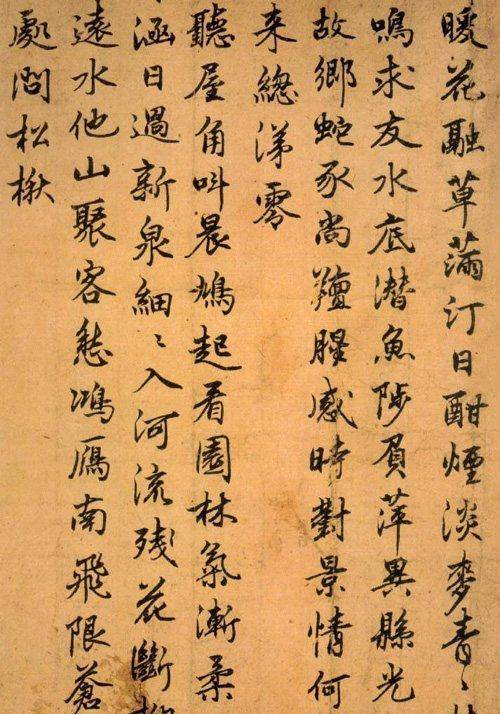 暖花融草滿汀日酣煙淡麥青〻
鳴求友水底潜魚陟負萍異縣光
故鄉蛇豕尚羶腥感時對景情何
来總涕零
聽屋角叫晨鳩起看園林氣漸柔
涵日過新泉細〻入河流残花斷
遠水他山聚客愁鴻鴈南飛限蒼
處問松楸